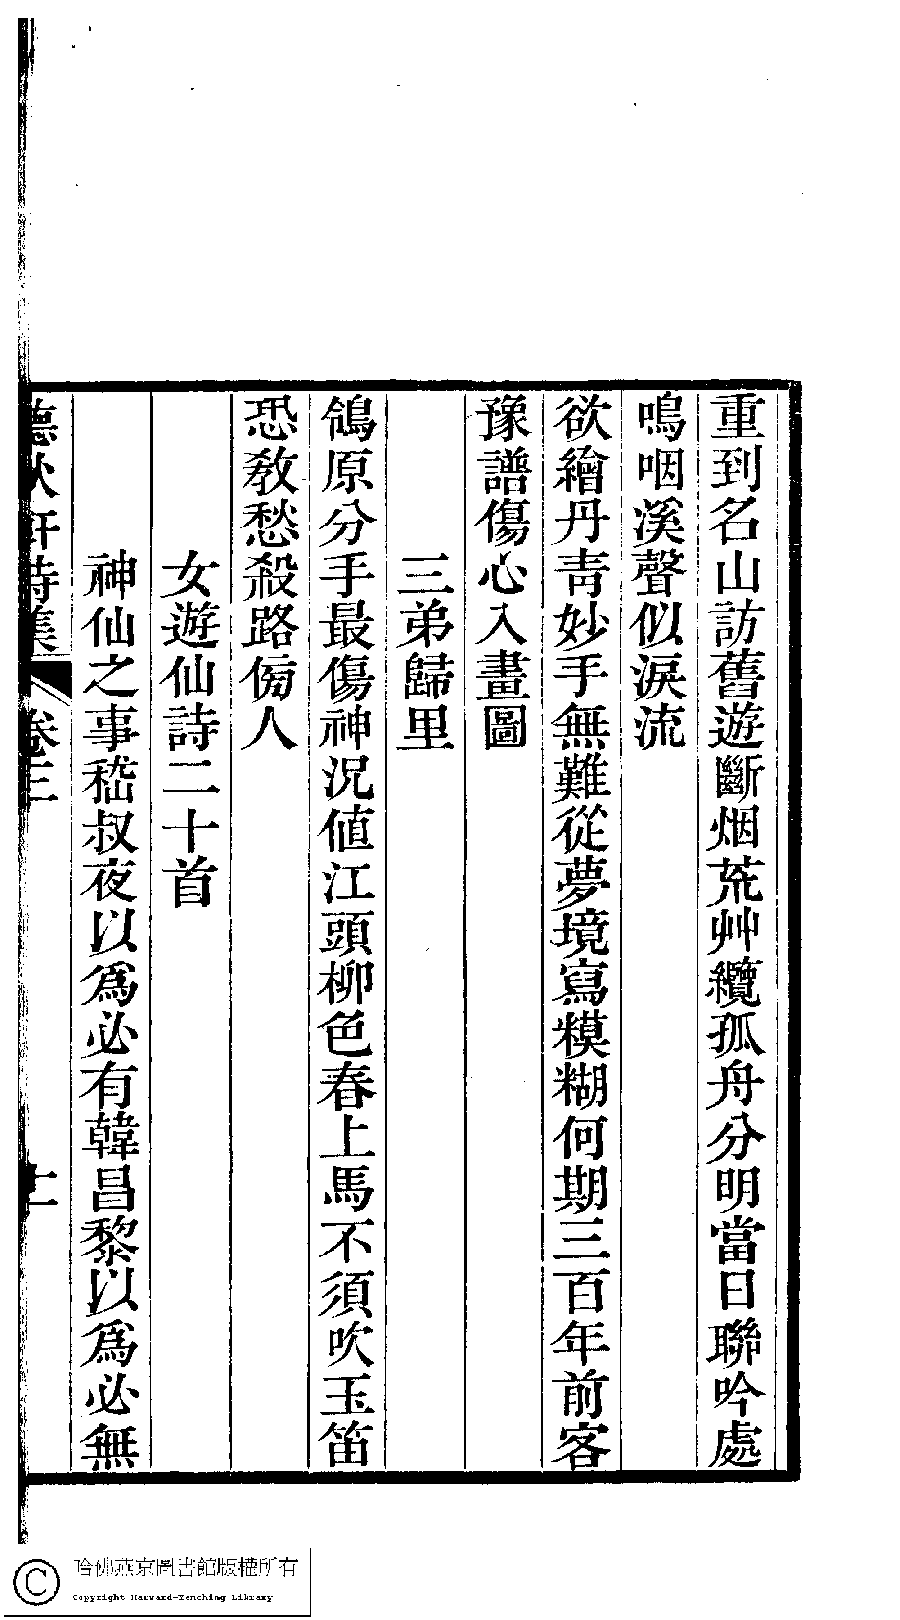 重到名山訪舊遊斷烟荒艸纜孤舟分明當日聯吟處
嗚咽溪聲似淚流
欲繪丹靑妙手無難從夢境寫糢糊何期三百年前客
豫譜傷心入畫圖
三弟歸里
鴒原分手最傷神況値江頭柳色春上馬不須吹玉笛
恐敎愁殺路傍人
女遊仙詩二十首
神仙之事嵇叔夜以爲必有韓昌黎以爲必無
秋軒詩集
卷三
哈佛燕京圖書館版權所有
Copyright Harvard-Yenching Library